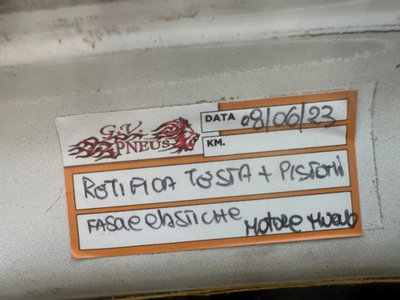 G.V. PNEUS
DATA 08/06/23
KM.
RETIFICA TESTA + PISTONI
FASCE ELASTICHE MOTORE NUOVO